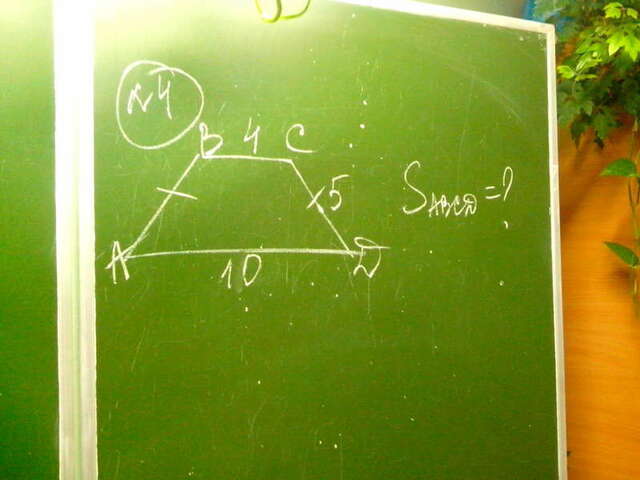 №4
B 4 C
5
S ABCD = ?
A 10 D